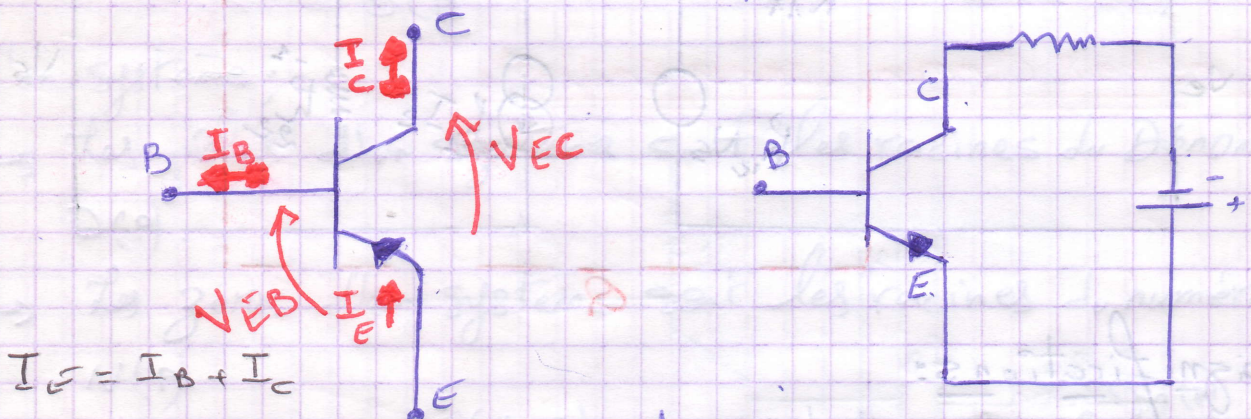 C
I
C
B
I_B
V_EC
V_EB
I
E
E
I_E = I_B + I_C
C
B
E.
-
+